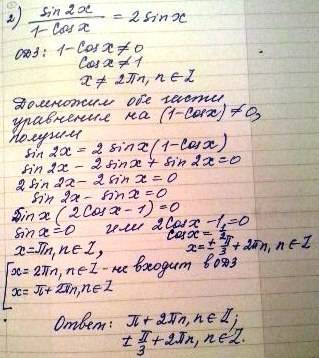 2) sin 2x / 1-cosx = 2 sin x
ОДЗ: 1-cosx≠0
cosx≠1
x≠2πn, n∈Z
Домножим обе части
уравнения на (1-cosx)≠0,
получим
sin 2x = 2 sinx(1-cosx)
sin 2x - 2 sinx + sin 2x = 0
2 sin 2x - 2 sin x = 0
sin 2x - sin x = 0
sin x (2cosx-1) = 0
sin x = 0 или 2cosx-1=0
cosx = 1/2
x=πn, n∈Z, x=±π/3+2πn, n∈Z
[x=2πn, n∈Z - не входит в ОДЗ
x=π+2πn, n∈Z
Ответ: π+2πn, n∈Z;
±π/3+2πn, n∈Z.